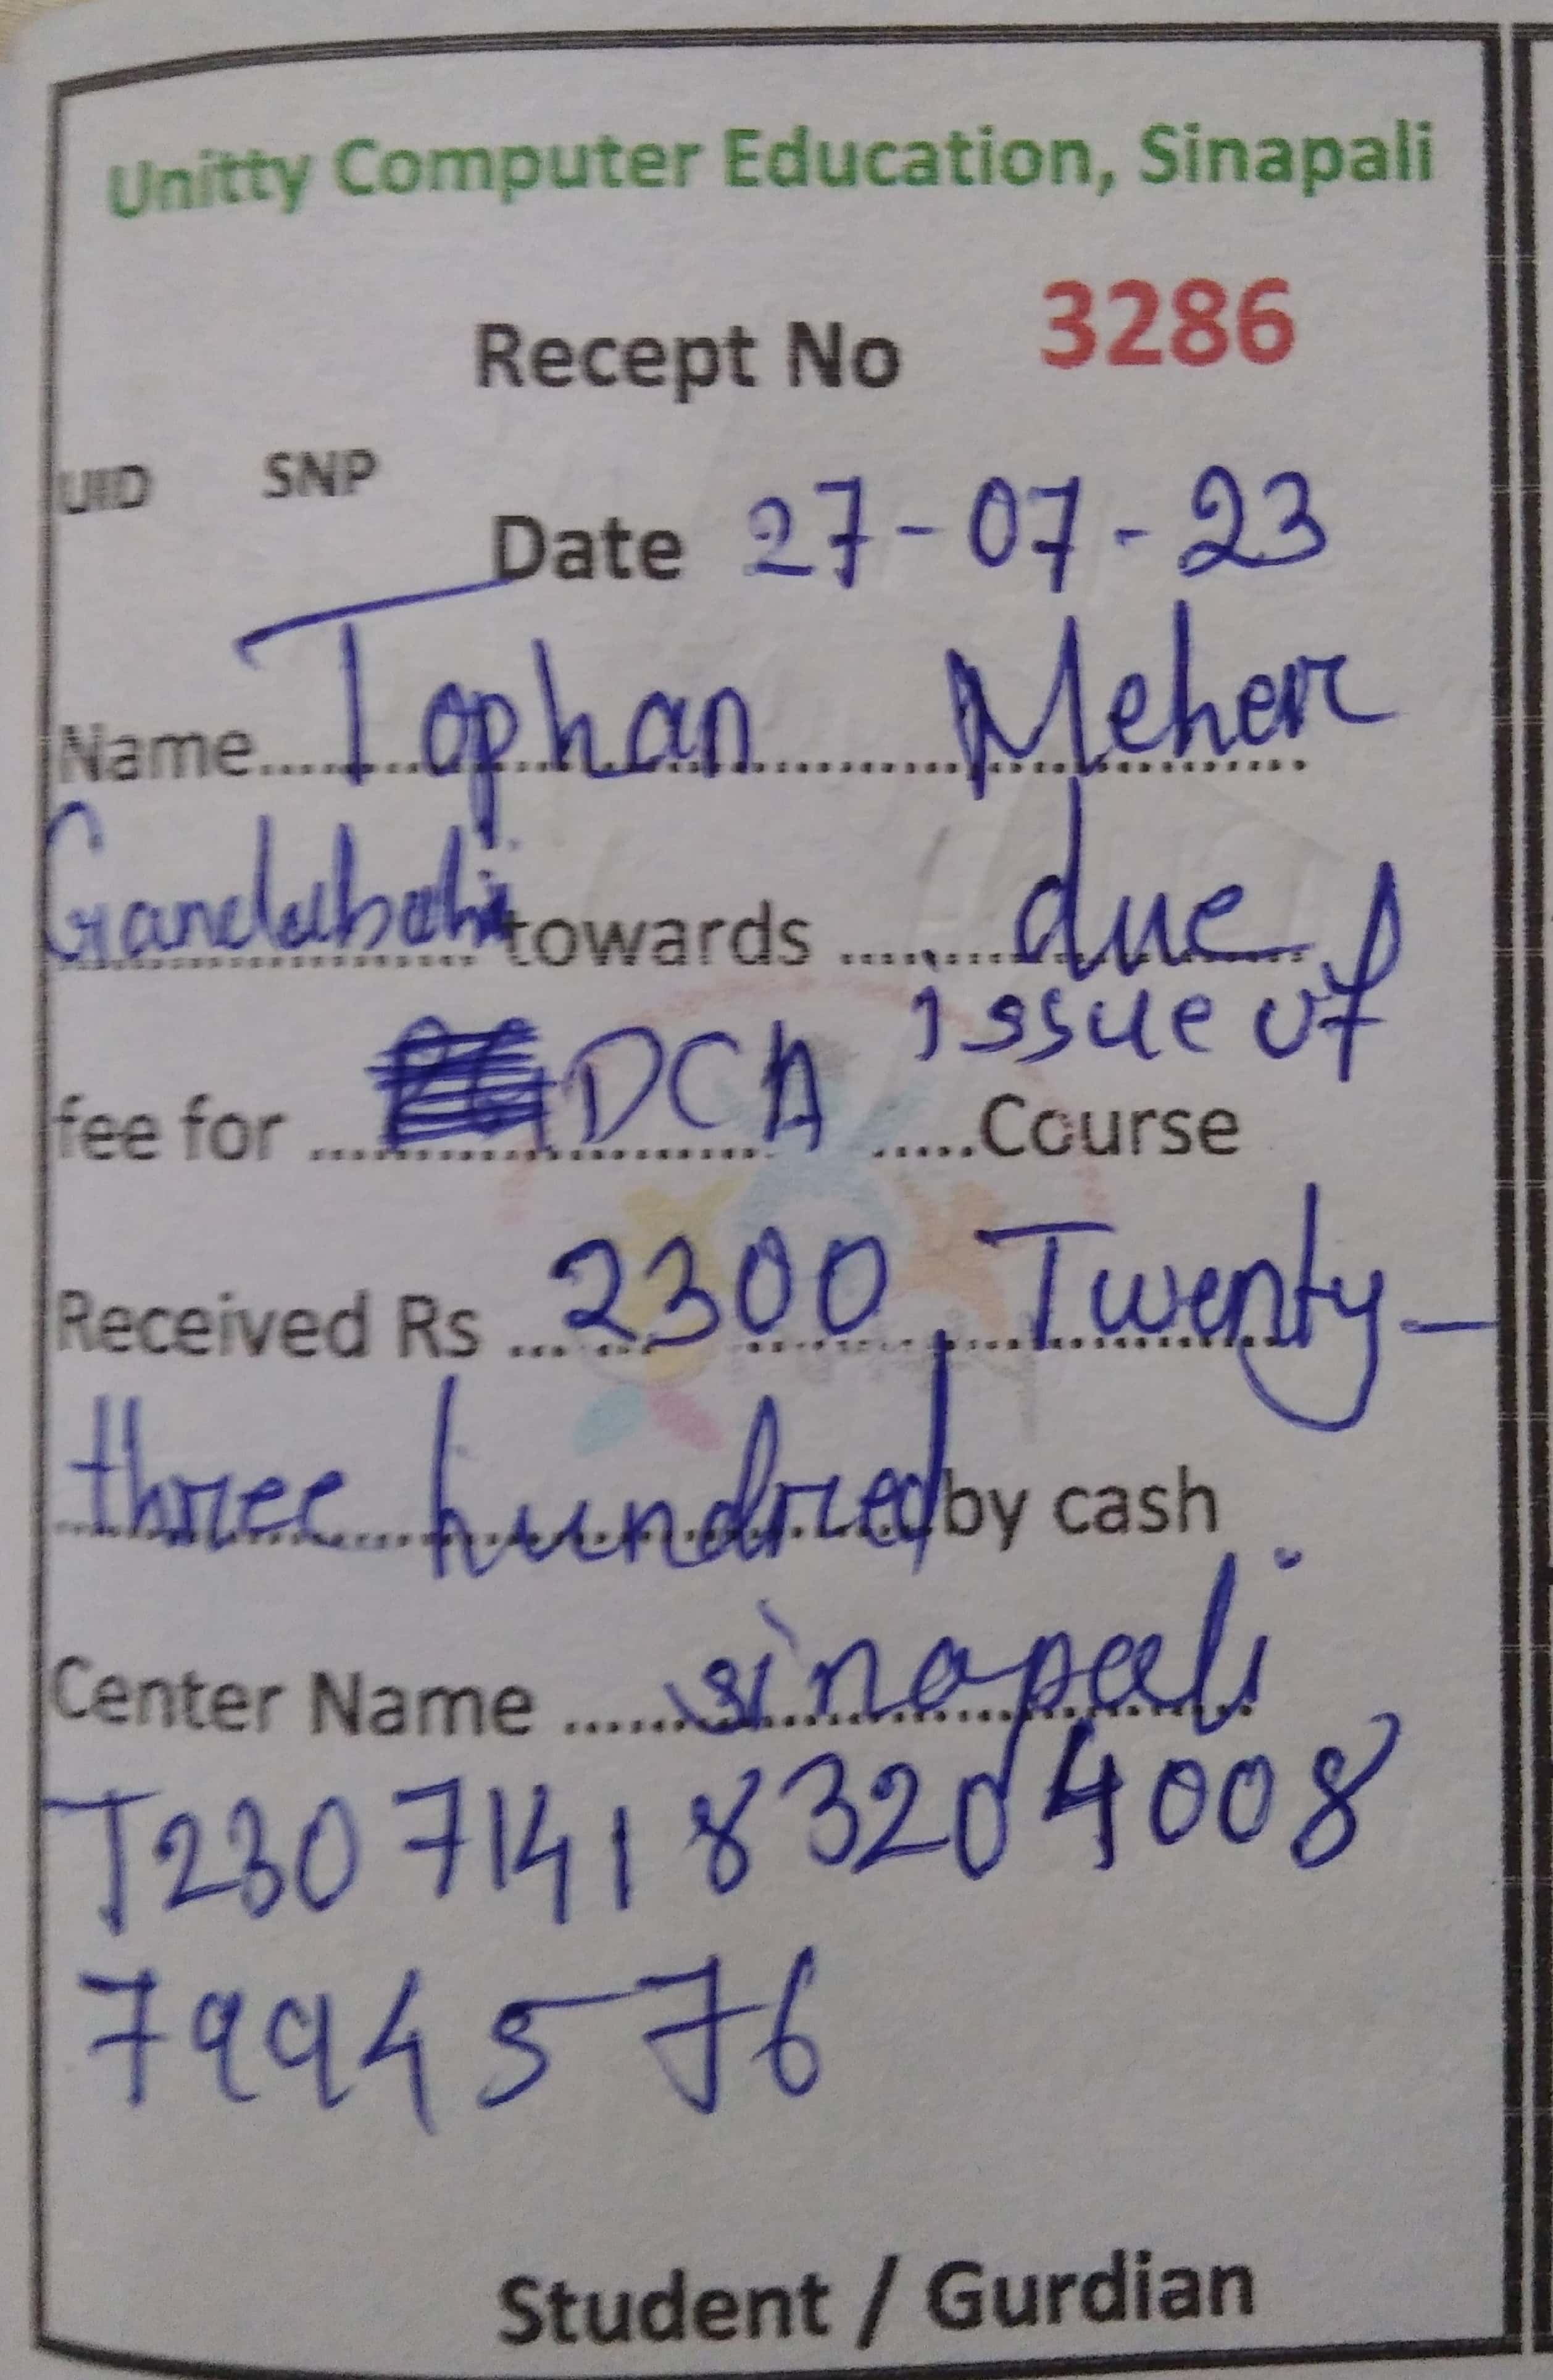 Unitty Computer Education, Sinapali
Recept No 3286
UID SNP
Date 27-07-23
Name Tophan Meher
Gandabahali towards due
issue of
fee for DCA Course
Received Rs 2300 Twenty-
three hundred by cash
Center Name sinapali
T23071418320 4008
7994576
Student / Gurdian